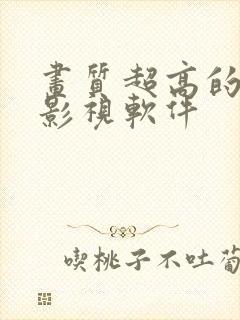 畫質超高的
影視軟件
喫桃子不吐葡